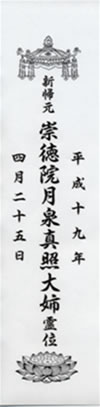 平成十九年
新帰元 崇徳院月泉真照大姉霊位
四月二十五日